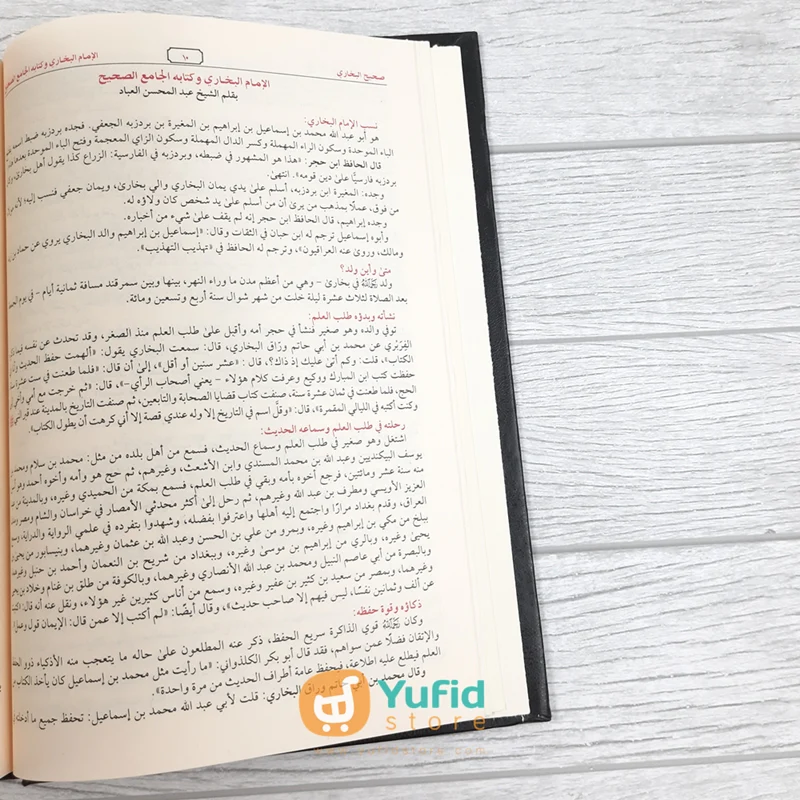 صحيح البخاري
١٥
الإمام البخاري وكتابه الجامع الصحيح
الإمام البخاري وكتابه الجامع الصحيح
بقلم الشيخ عبد المحسن العباد
نسب الإمام البخاري:
هو أبو عبد الله محمد بن إسماعيل بن إبراهيم بن المغيرة بن بردزبه الجعفي. فجده بردزبه ضبط اسمه
الباء الموحدة وسكون الراء المهملة وكسر الدال المهملة وسكون الزاي المعجمة وفتح الباء الموحدة بعدها
قال الحافظ ابن حجر: «هذا هو المشهور في ضبطه، وبردزبه في الفارسية: الزراع كذا يقول أهل بخارى،
بردزبه فارسيًّا على دين قومه». انتهى.
وجده: المغيرة بن بردزبه، أسلم على يدي يمان البخاري والي بخارى، ويمان جعفي فنسب إليه؛ لأنه
من فوق، عملًا بمذهب من يرى أن من أسلم على يد شخص كان ولاؤه له.
وجده إبراهيم، قال الحافظ ابن حجر إنه لم يقف على شيء من أخباره.
وأبوه إسماعيل ترجم له ابن حبان في الثقات وقال: «إسماعيل بن إبراهيم والد البخاري يروي عن حماد بن
ومالك، وروى عنه العراقيون»، وترجم له الحافظ في «تهذيب التهذيب».
متى وأين ولد؟
ولد رَحِمَهُ اللهُ في بخارى – وهي من أعظم مدن ما وراء النهر، بينها وبين سمرقند مسافة ثمانية أيام – في يوم
بعد الصلاة لثلاث عشرة ليلة خلت من شهر شوال سنة أربع وتسعين ومائة.
نشأته وبدؤه طلب العلم:
توفي والده وهو صغير فنشأ في حجر أمه وأقبل على طلب العلم منذ الصغر، وقد تحدث عن نفسه فيما
الفِرَبْري عن محمد بن أبي حاتم ورَّاق البخاري، قال: سمعت البخاري يقول: «ألهمت حفظ الحديث
الكتاب»، قلت: وكم أتى عليك إذ ذاك؟، قال: «عشر سنين أو أقل»، إلى أن قال: «فلما طعنت في ست عشرة
حفظت كتب ابن المبارك ووكيع وعرفت كلام هؤلاء – يعني أصحاب الرأي –»، قال: «ثم خرجت مع أمي وأخي
الحج، فلما طعنت في ثمان عشرة سنة، صنفت كتاب قضايا الصحابة والتابعين، ثم صنفت التاريخ بالمدينة عند قبر النبي
وكنت أكتبه في الليالي المقمرة»، قال: «وقلَّ اسم في التاريخ إلا وله عندي قصة إلا أني كرهت أن يطول الكتاب».
رحلته في طلب العلم وسماعه الحديث:
اشتغل وهو صغير في طلب العلم وسماع الحديث، فسمع من أهل بلده من مثل: محمد بن سلام ومحمد
يوسف البيكنديين وعبد الله بن محمد المسندي وابن الأشعث، وغيرهم، ثم حج هو وأمه وأخوه أحمد وهو
منه سنة عشر ومائتين، فرجع أخوه بأمه وبقي في طلب العلم، فسمع بمكة من الحميدي وغيره، وبالمدينة من
العزيز الأويسي ومطرف بن عبد الله وغيرهم، ثم رحل إلى أكثر محدثي الأمصار في خراسان والشام ومصر
العراق، وقدم بغداد مرارًا واجتمع إليه أهلها واعترفوا بفضله، وشهدوا بتفرده في علمي الرواية والدراية،
ببلخ من مكي بن إبراهيم وغيره، وبمرو من علي بن الحسن وعبد الله بن عثمان وغيرهما، وبنيسابور من يحيى
يحيى وغيره، وبالري من إبراهيم بن موسى وغيره، وببغداد من شريح بن النعمان وأحمد بن حنبل
وبالبصرة من أبي عاصم النبيل ومحمد بن عبد الله الأنصاري وغيرهما، وبالكوفة من طلق بن غنام وخلاد بن
وغيرهما، وبمصر من سعيد بن كثير بن عفير وغيره، وسمع من أناس كثيرين غير هؤلاء، ونقل عنه أنه قال:
عن ألف وثمانين نفسًا، ليس فيهم إلا صاحب حديث»، وقال أيضًا: «لم أكتب إلا عمن قال: الإيمان قول وعمل
ذكاؤه وقوة حفظه:
وكان رَحِمَهُ اللهُ قوي الذاكرة سريع الحفظ، ذكر عنه المطلعون على حاله ما يتعجب منه الأذكياء ذوو
والإتقان فضلًا عمن سواهم، فقد قال أبو بكر الكلذواني: «ما رأيت مثل محمد بن إسماعيل كان يأخذ الكتاب
العلم فيطلع عليه اطلاعة، فيحفظ عامة أطراف الحديث من مرة واحدة».
وقال محمد بن أبي حاتم وراق البخاري: قلت لأبي عبد الله محمد بن إسماعيل: تحفظ جميع ما
Yufid
store